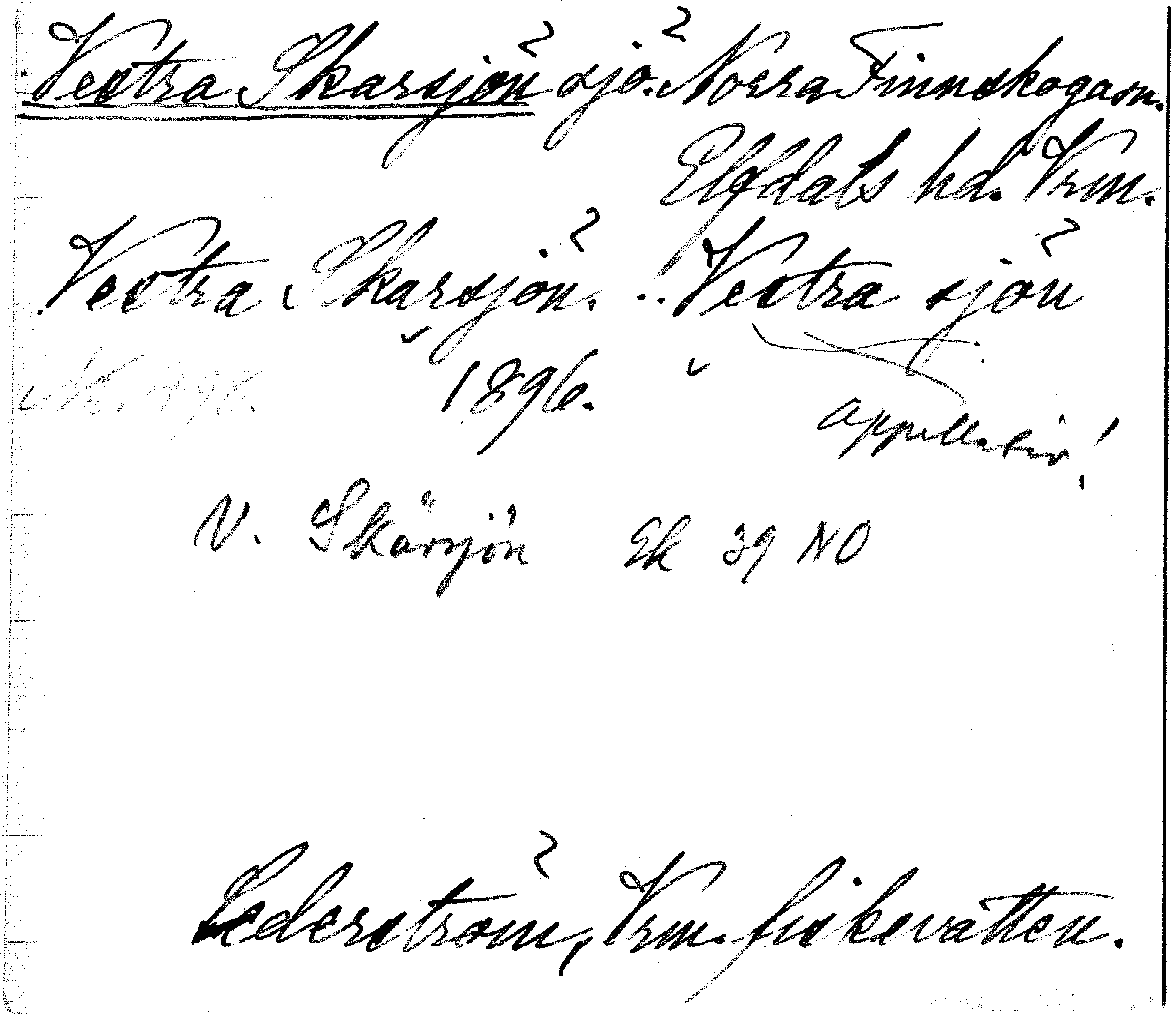 Vestra Skarsjön sjö. Norra Finnskoga sn.
Elfdals hd. Vrm.
Vestra Skarsjön. .. Vestra sjön
1896.
appellativ!
V. Skärsjön Ek 39 NO
Cederström, Vrm. fiskevatten.